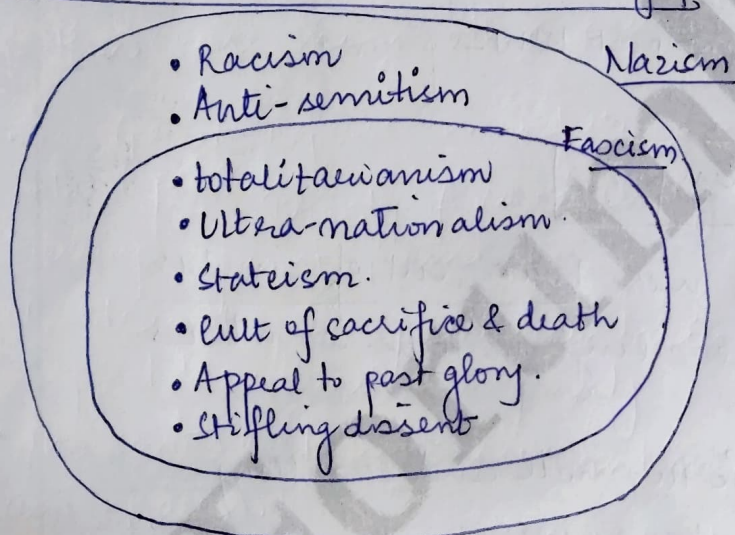 • Racism
Nazism
• Anti-semitism
Fascism
• totalitarianism
• Ultra-nationalism.
• Stateism.
• Cult of sacrifice & death
• Appeal to past glory.
• Stifling dissent